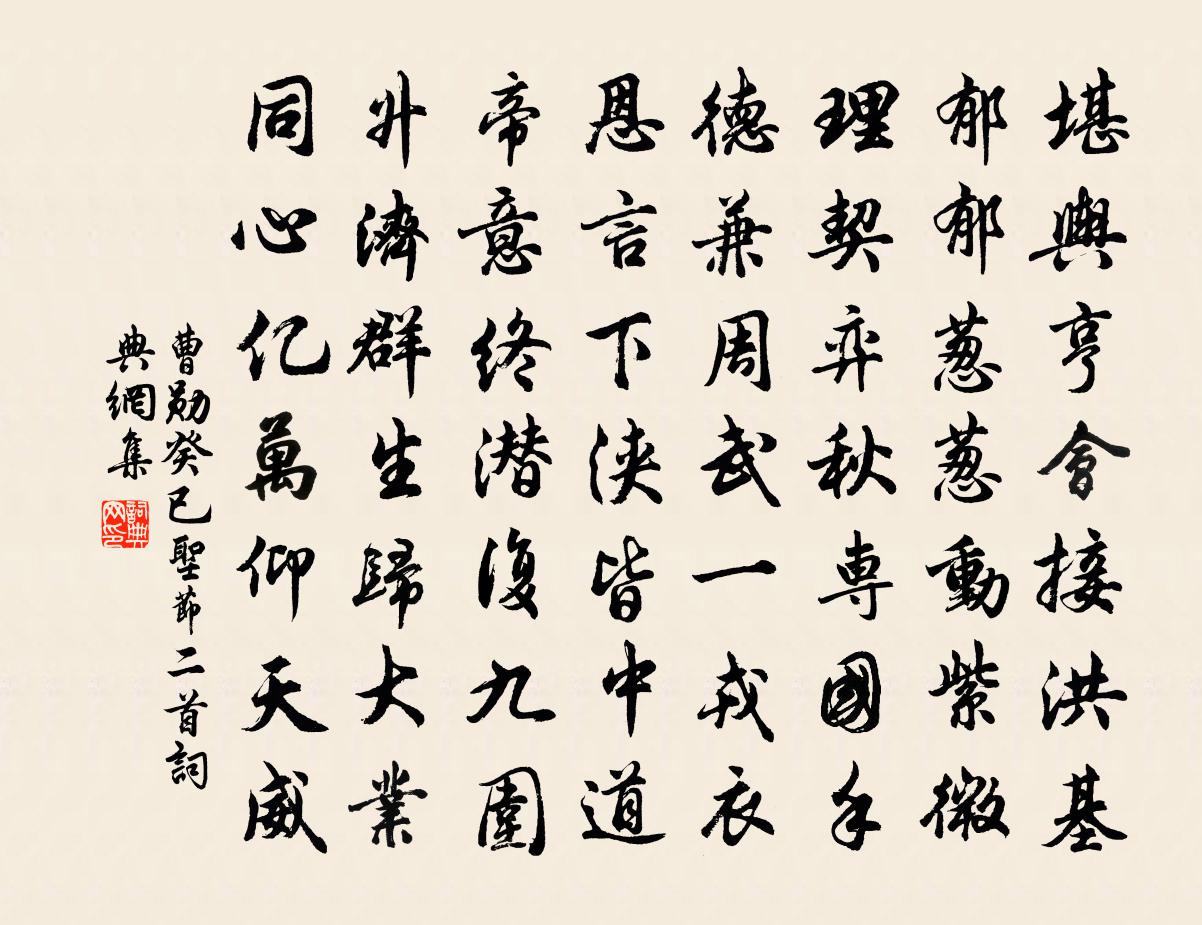 堪輿亨會接洪基
郁郁葱葱動紫微
理契弈秋専國手
德兼周武一戎衣
恩言下浹皆中道
帝意終潛復九圍
升濟群生歸大業
同心亿萬仰天威
曹勛癸巳聖節二首詞
典網集
詞典网印